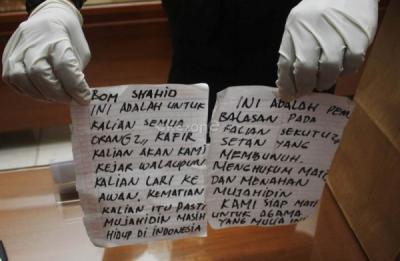 BOM SHAHID
INI ADALAH UNTUK
KALIAN SEMUA
ORANG2,, KAFIR
KALIAN AKAN KAMI
KEJAR WALAUPUN
KALIAN LARI KE
AWAN, KEMATIAN
KALIAN ITU PASTI
MUJAHIDIN MASIH
HIDUP DI INDONESIA
INI ADALAH PEM
BALASAN PADA
KALIAN SEKUTU2
SETAN YANG
MEMBUNUH.
MENGHUKUM MATI
DAN MENAHAN
MUJAHIDIN
KAMI SIAP MATI
UNTUK AGAMA
YANG MULIA INI